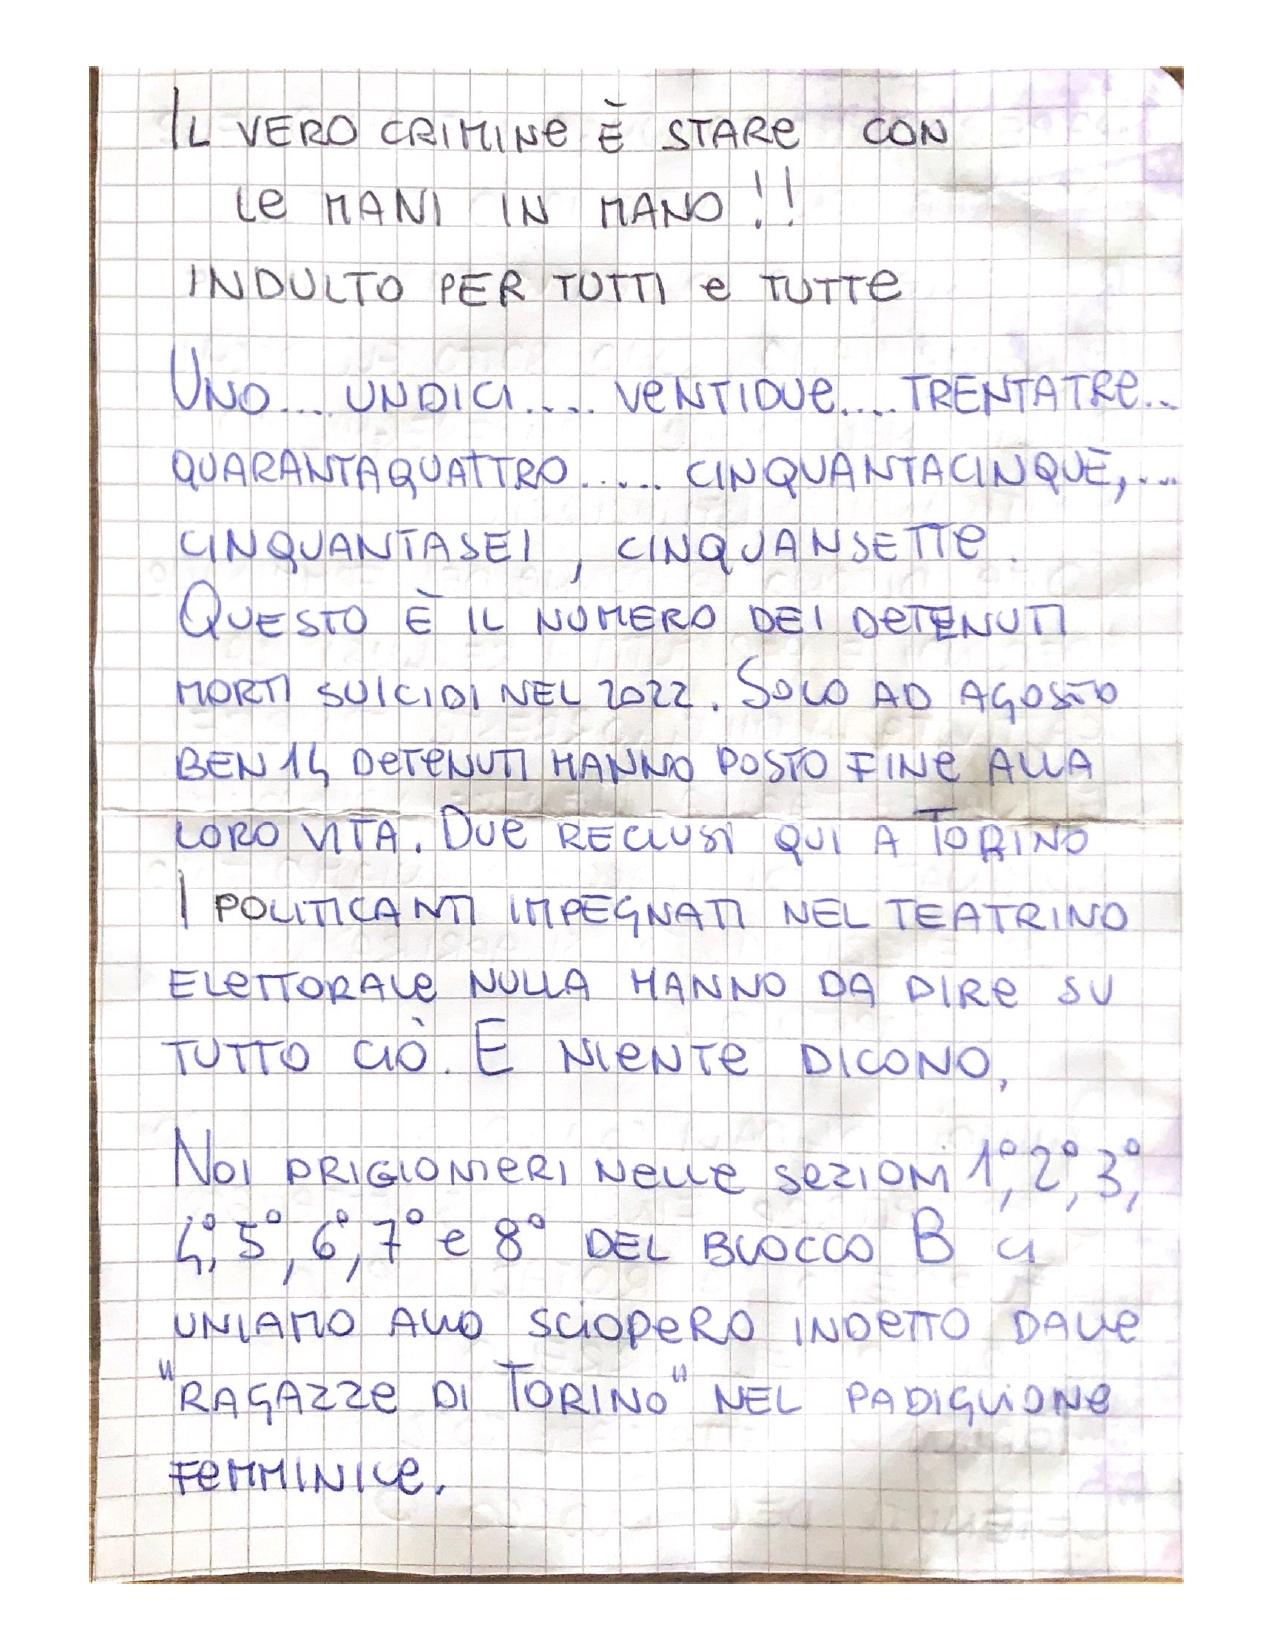 IL VERO CRIMINE È STARE CON
LE MANI IN MANO!!
INDULTO PER TUTTI e TUTTE
UNO... UNDICI.... VENTIDUE.... TRENTATRE...
QUARANTAQUATTRO..... CINQUANTACINQUE,...
CINQUANTASEI, CINQUANSETTE.
QUESTO È IL NUMERO DEI DETENUTI
MORTI SUICIDI NEL 2022. SOLO AD AGOSTO
BEN 14 DETENUTI HANNO POSTO FINE ALLA
LORO VITA. DUE RECLUSI QUI A TORINO
I POLITICANTI IMPEGNATI NEL TEATRINO
ELETTORALE NULLA HANNO DA DIRE SU
TUTTO CIÒ. E NIENTE DICONO,
NOI PRIGIONIERI NELLE SEZIONI 1°, 2°, 3°,
4°, 5°, 6°, 7° e 8° DEL BLOCCO B CI
UNIAMO ALLO SCIOPERO INDETTO DALLE
"RAGAZZE DI TORINO" NEL PADIGLIONE
FEMMINILE.